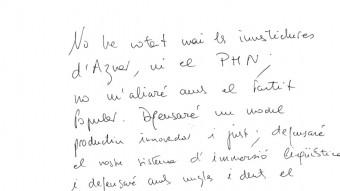 No he votat mai les investidures
d'Aznar, ni el PHN;
no m'aliaré amb el Partit
Popular. Defensaré un model
productiu innovador i just; defensaré
el nostre sistema d'immersió lingüística
i defensaré amb ungles i dents el